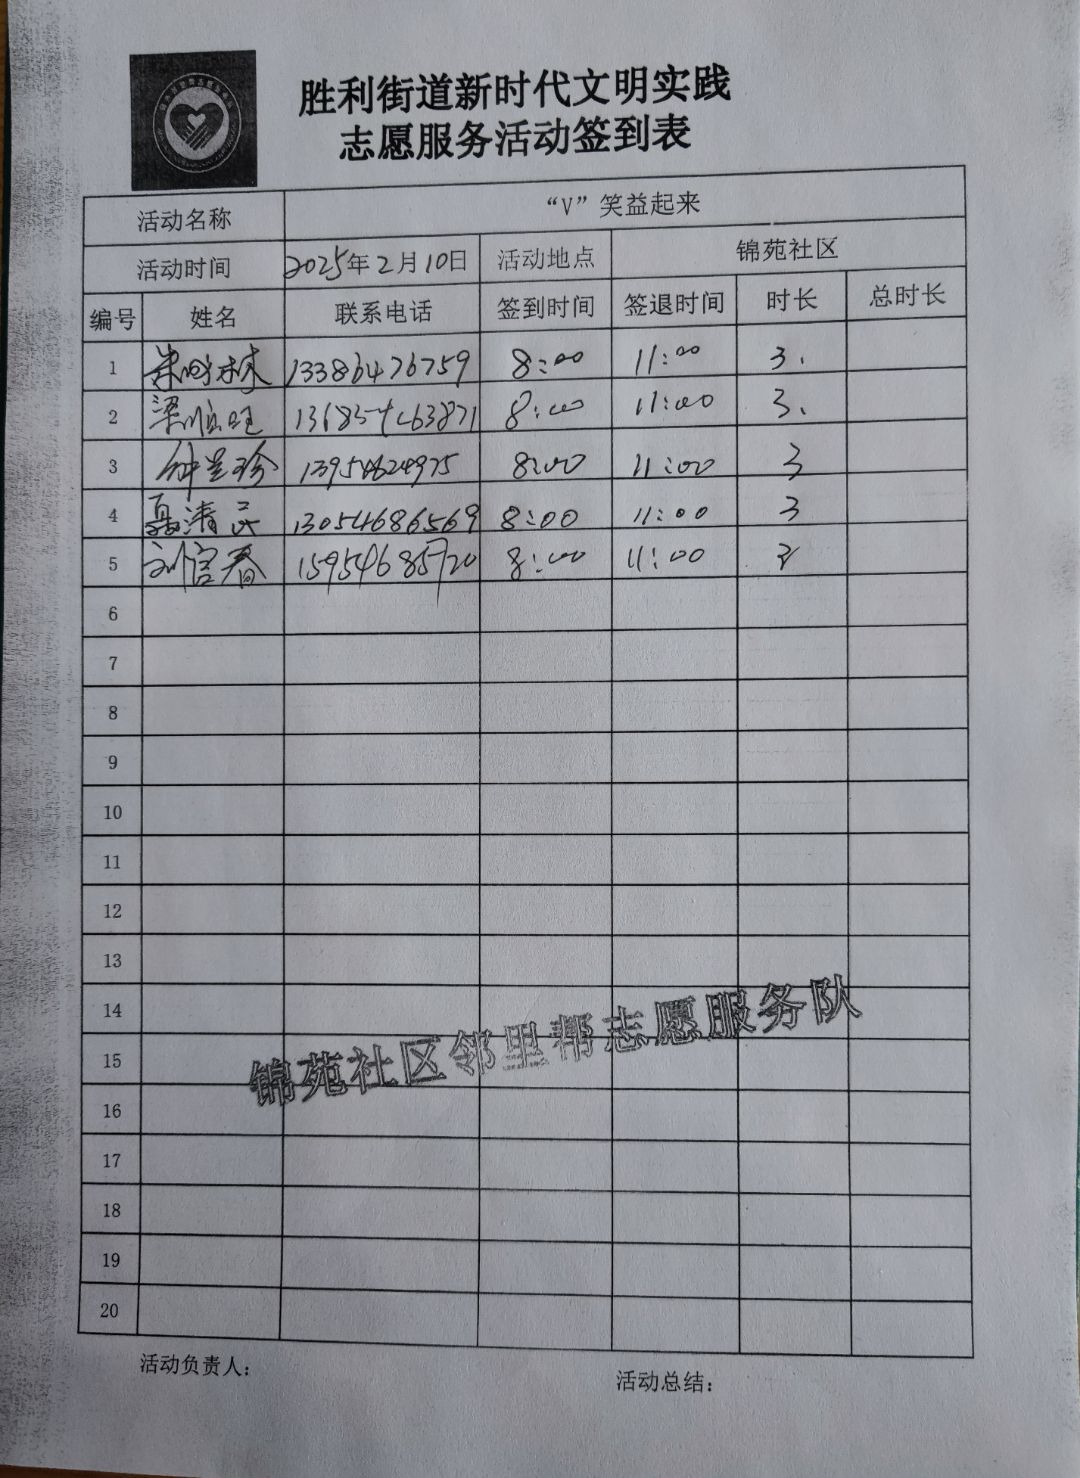 胜利街道新时代文明实践
志愿服务活动签到表
活动名称 “V”笑益起来
活动时间 2025年2月10日 活动地点 锦苑社区
编号 姓名 联系电话 签到时间 签退时间 时长 总时长
1 13386476759 8:00 11:00 3.
2 梁顺旺 8:00 11:00 3.
3 钟兰珍 13954624975 8:00 11:00 3
4 聂清民 13054686569 8:00 11:00 3
5 刘官春 15954685720 8:00 11:00 3
6
7
8
9
10
11
12
13
14
15
16
17
18
19
20
锦苑社区邻里帮志愿服务队
活动负责人：
活动总结：